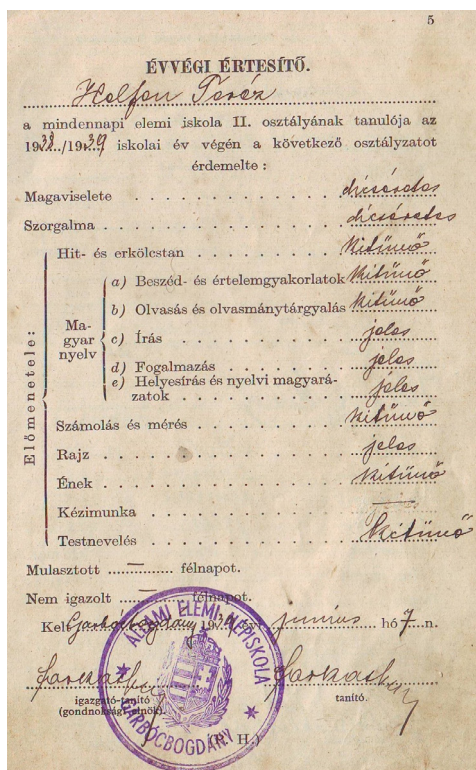 5
ÉVVÉGI ÉRTESÍTŐ.
Teréz
a mindennapi elemi iskola II. osztályának tanulója az
1938../1939 iskolai év végén a következő osztályzatot
érdemelte :
Magaviselete dicséretes
Szorgalma dicséretes
Előmenetele:
Hit- és erkölcstan kitünő
Magyar nyelv
a) Beszéd- és értelemgyakorlatok kitünő
b) Olvasás és olvasmánytárgyalás kitünő
c) Írás jeles
d) Fogalmazás jeles
e) Helyesírás és nyelvi magyará-
zatok jeles
Számolás és mérés kitünő
Rajz jeles
Ének kitünő
Kézimunka —
Testnevelés kitünő
Mulasztott — félnapot.
Nem igazolt — félnapot.
Kelt Garbócbogdány 1939 évi junius hó 7.n.
igazgató-tanító
(gondnoksági elnök).
tanító.
(P. H.)
ÁLLAMI ELEMI NÉPISKOLA
GARBÓCBOGDÁNY